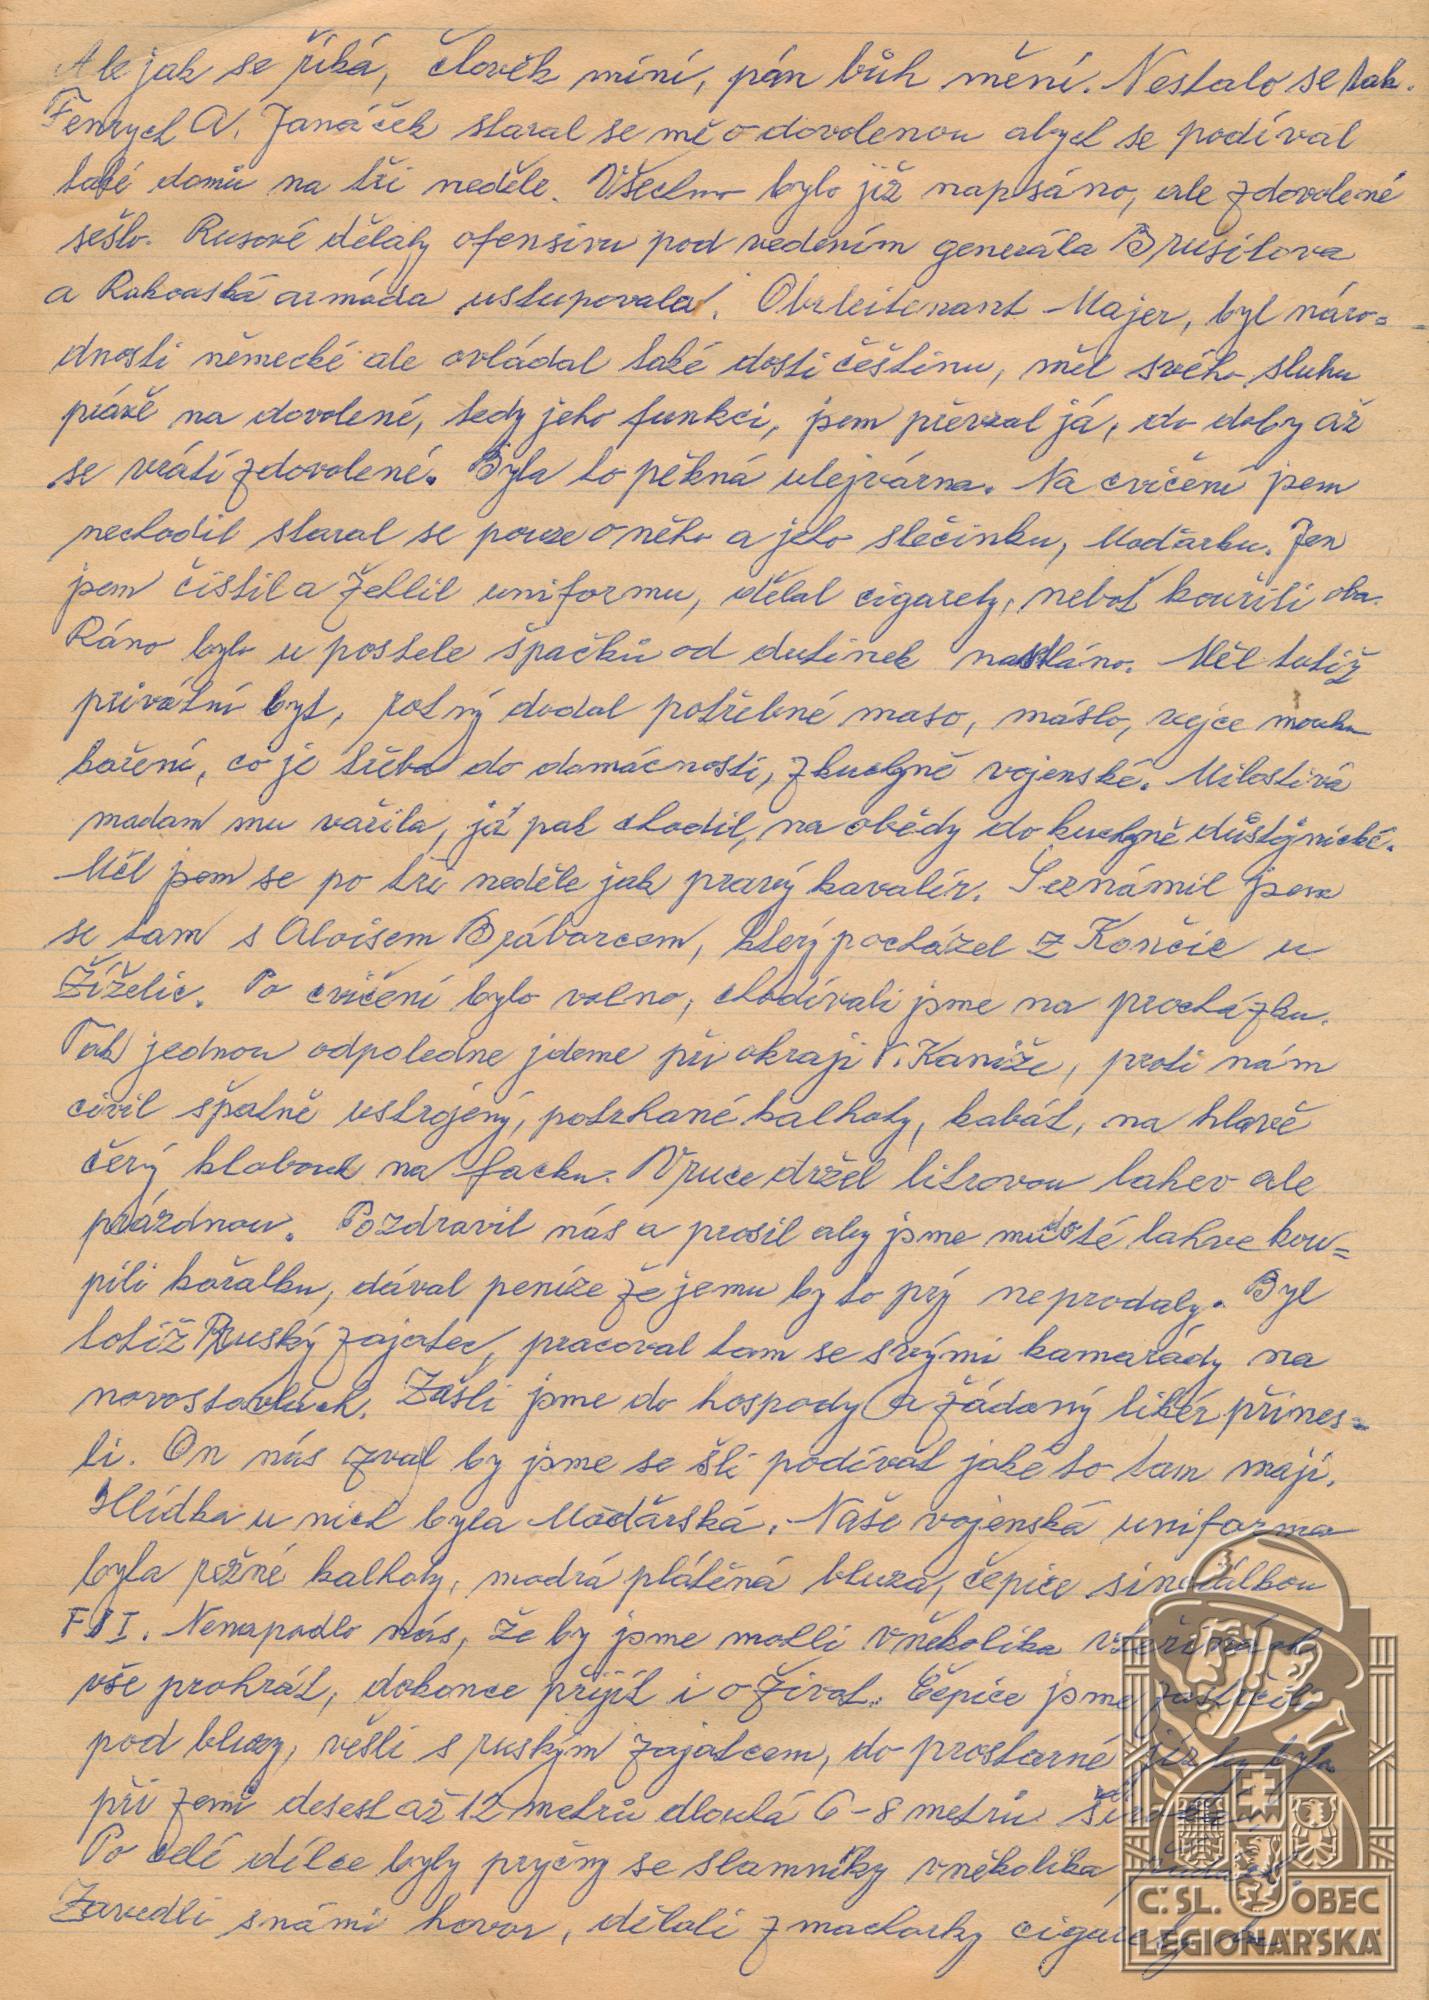 Ale jak se říká, člověk míní, pán bůh mění. Nestalo se tak.
Fenrych A. Janáček staral se mě o dovolenou abych se podíval
také domů na tři neděle. Všechno bylo již napsáno, ale z dovolené
sešlo. Rusové dělaly ofensivu pod vedením generála Brusilova
a Rakouská armáda ustupovala. Obrleitenant Majer, byl náro=
dnosti německé ale ovládal také dosti češtinu, měl svého sluhu
právě na dovolené, tedy jeho funkci, jsem převzal já, do doby až
se vrátí z dovolené. Byla to pěkná ulejvárna. Na cvičení jsem
nechodil staral se pouze o něho a jeho slečinku, Maďarku. Jen
jsem čistil a žehlil uniformu, dělal cigarety, neboť kouřili oba.
Ráno bylo u postele špačků od dutinek nastláno. Měl totiž
privátní byt, rotný dodal potřebné maso, máslo, vejce mouku
koření, co je třeba do domácnosti, z kuchyně vojenské. Milostivá
madam mu vařila, já pak chodil, na obědy do kuchyně důstojnické.
Měl jsem se po tři neděle jak pravý kavalír. Seznámil jsem
se tam s Aloisem Bráborcem, který pocházel z Končic u
Žíželic. Po cvičení bylo volno, chodívali jsme na procházku.
Tak jednou odpoledne jdeme při okraji V. Kaniže, proti nám
civil špatně ustrojený, potrhané kalhoty, kabát, na hlavě
čerý klobouk na facku. V ruce držel litrovou lahev ale
prázdnou. Pozdravil nás a prosil aby jsme mu do té lahve kou=
pili kořalku, dával peníze že jemu by to prý neprodaly. Byl
totiž Ruský zajatec, pracoval tam se svými kamarády na
novostavbách. Zašli jsme do hospody a žádaný likér přines=
li. On nás zval by jsme se šli podívat jaké to tam mají.
Hlídka u nich byla Maďarská. Naše vojenská uniforma
byla režné kalhoty, modrá plátěná bluza, čepice s iniciálkou
FJI. Nenapadlo nás, že by jsme mohli v několika vteřinách
vše prohrát, dokonce přijít i o život. Čepice jsme zastrčili
pod bluzy, vešli s ruským zajatcem, do prostarné jizba byla
při zemi deset až 12 metrů dlouhá 6-8 metrů široká.
Po celé délce byly pryčny se slamníky v několika řadách.
Zavedli s námi hovor, dělali z machorky cigarety
Č.SL. OBEC
LEGIONÁŘSKÁ